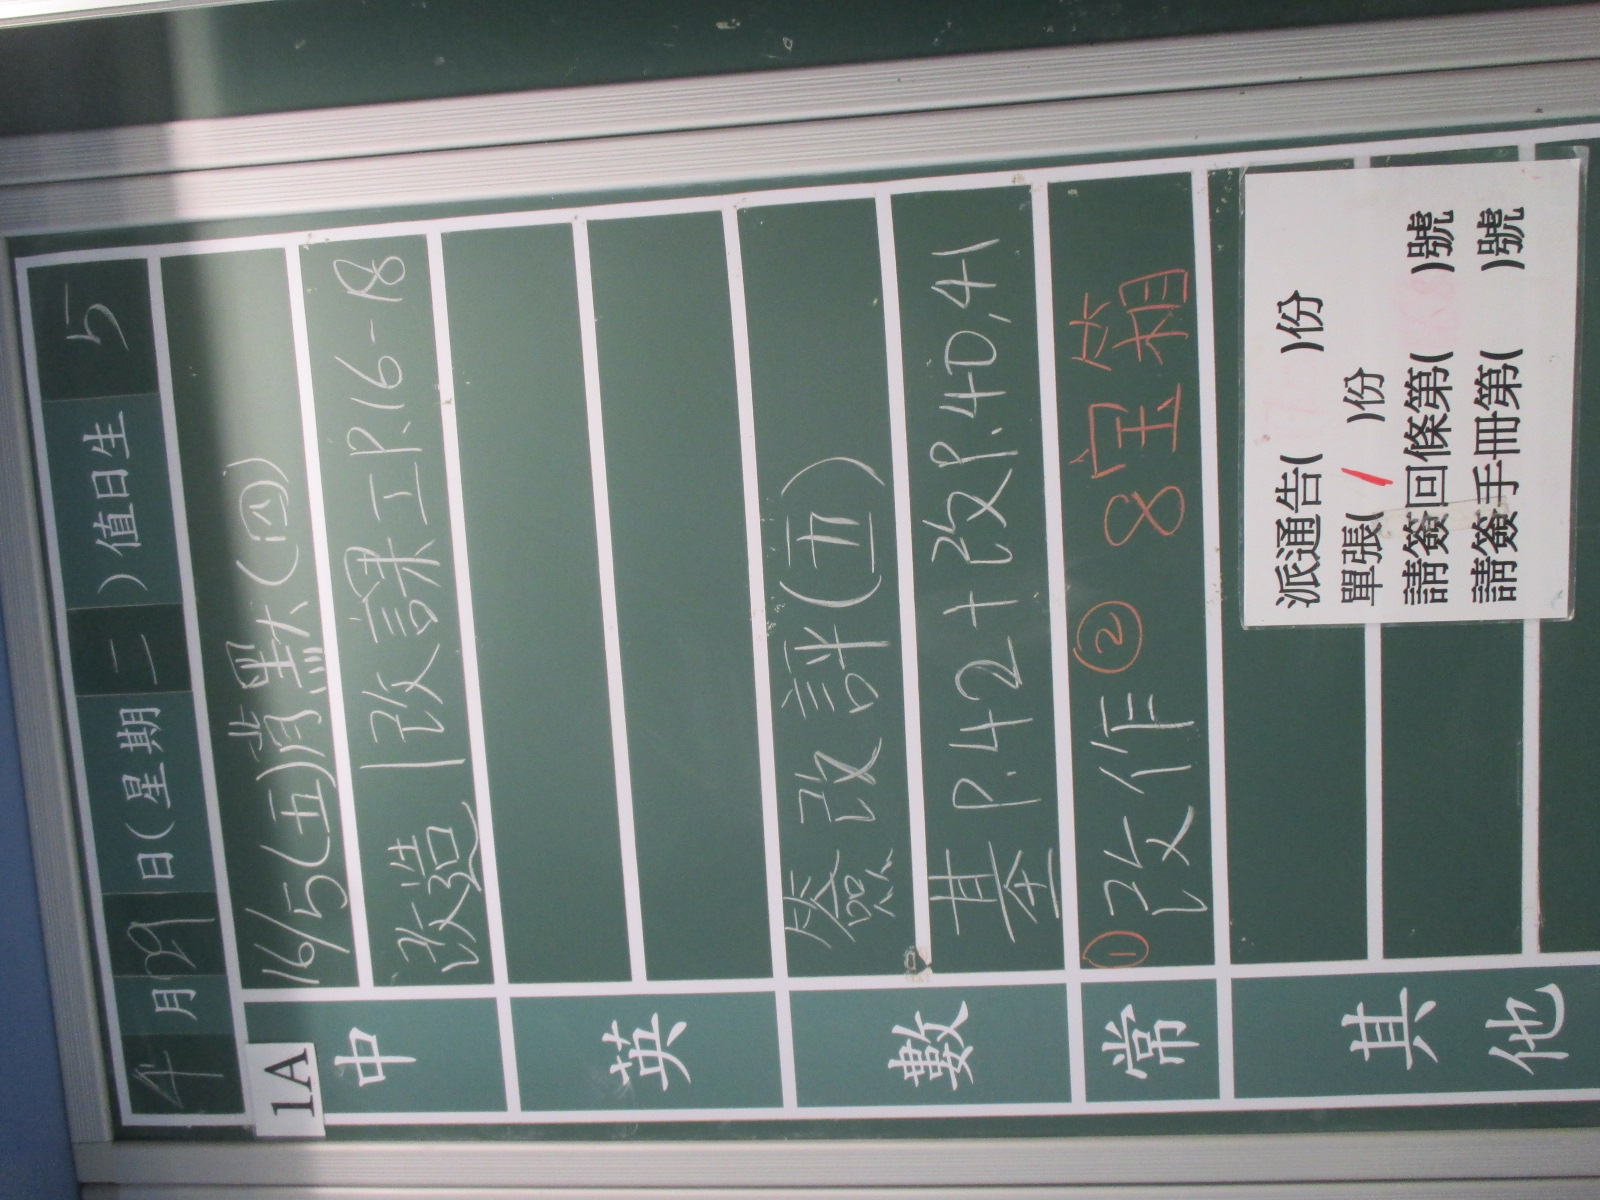 4月29日(星期二)值日生 5
1A
中
16/5(五)背默(四)
改造|改課工P.16-18
英
數
簽改評(五)
基P.42+改P.40,41
常
①改作②8宝箱
其他
派通告( )份
單張( / )份
請簽回條第( )號
請簽手冊第( )號